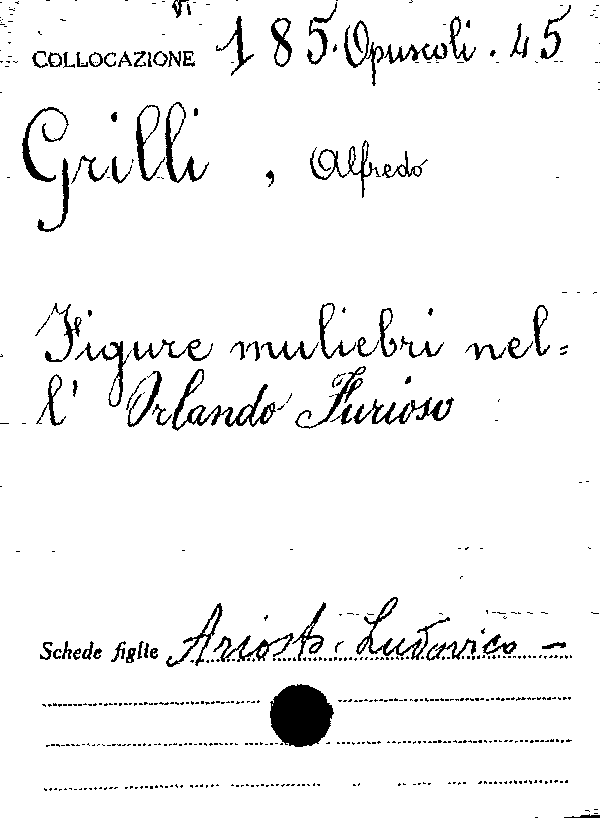 VI
COLLOCAZIONE 185. Opuscoli. 45
Grilli, Alfredo
Figure muliebri nel=
l' Orlando Furioso
Schede figlie Ariosto. Ludovico —